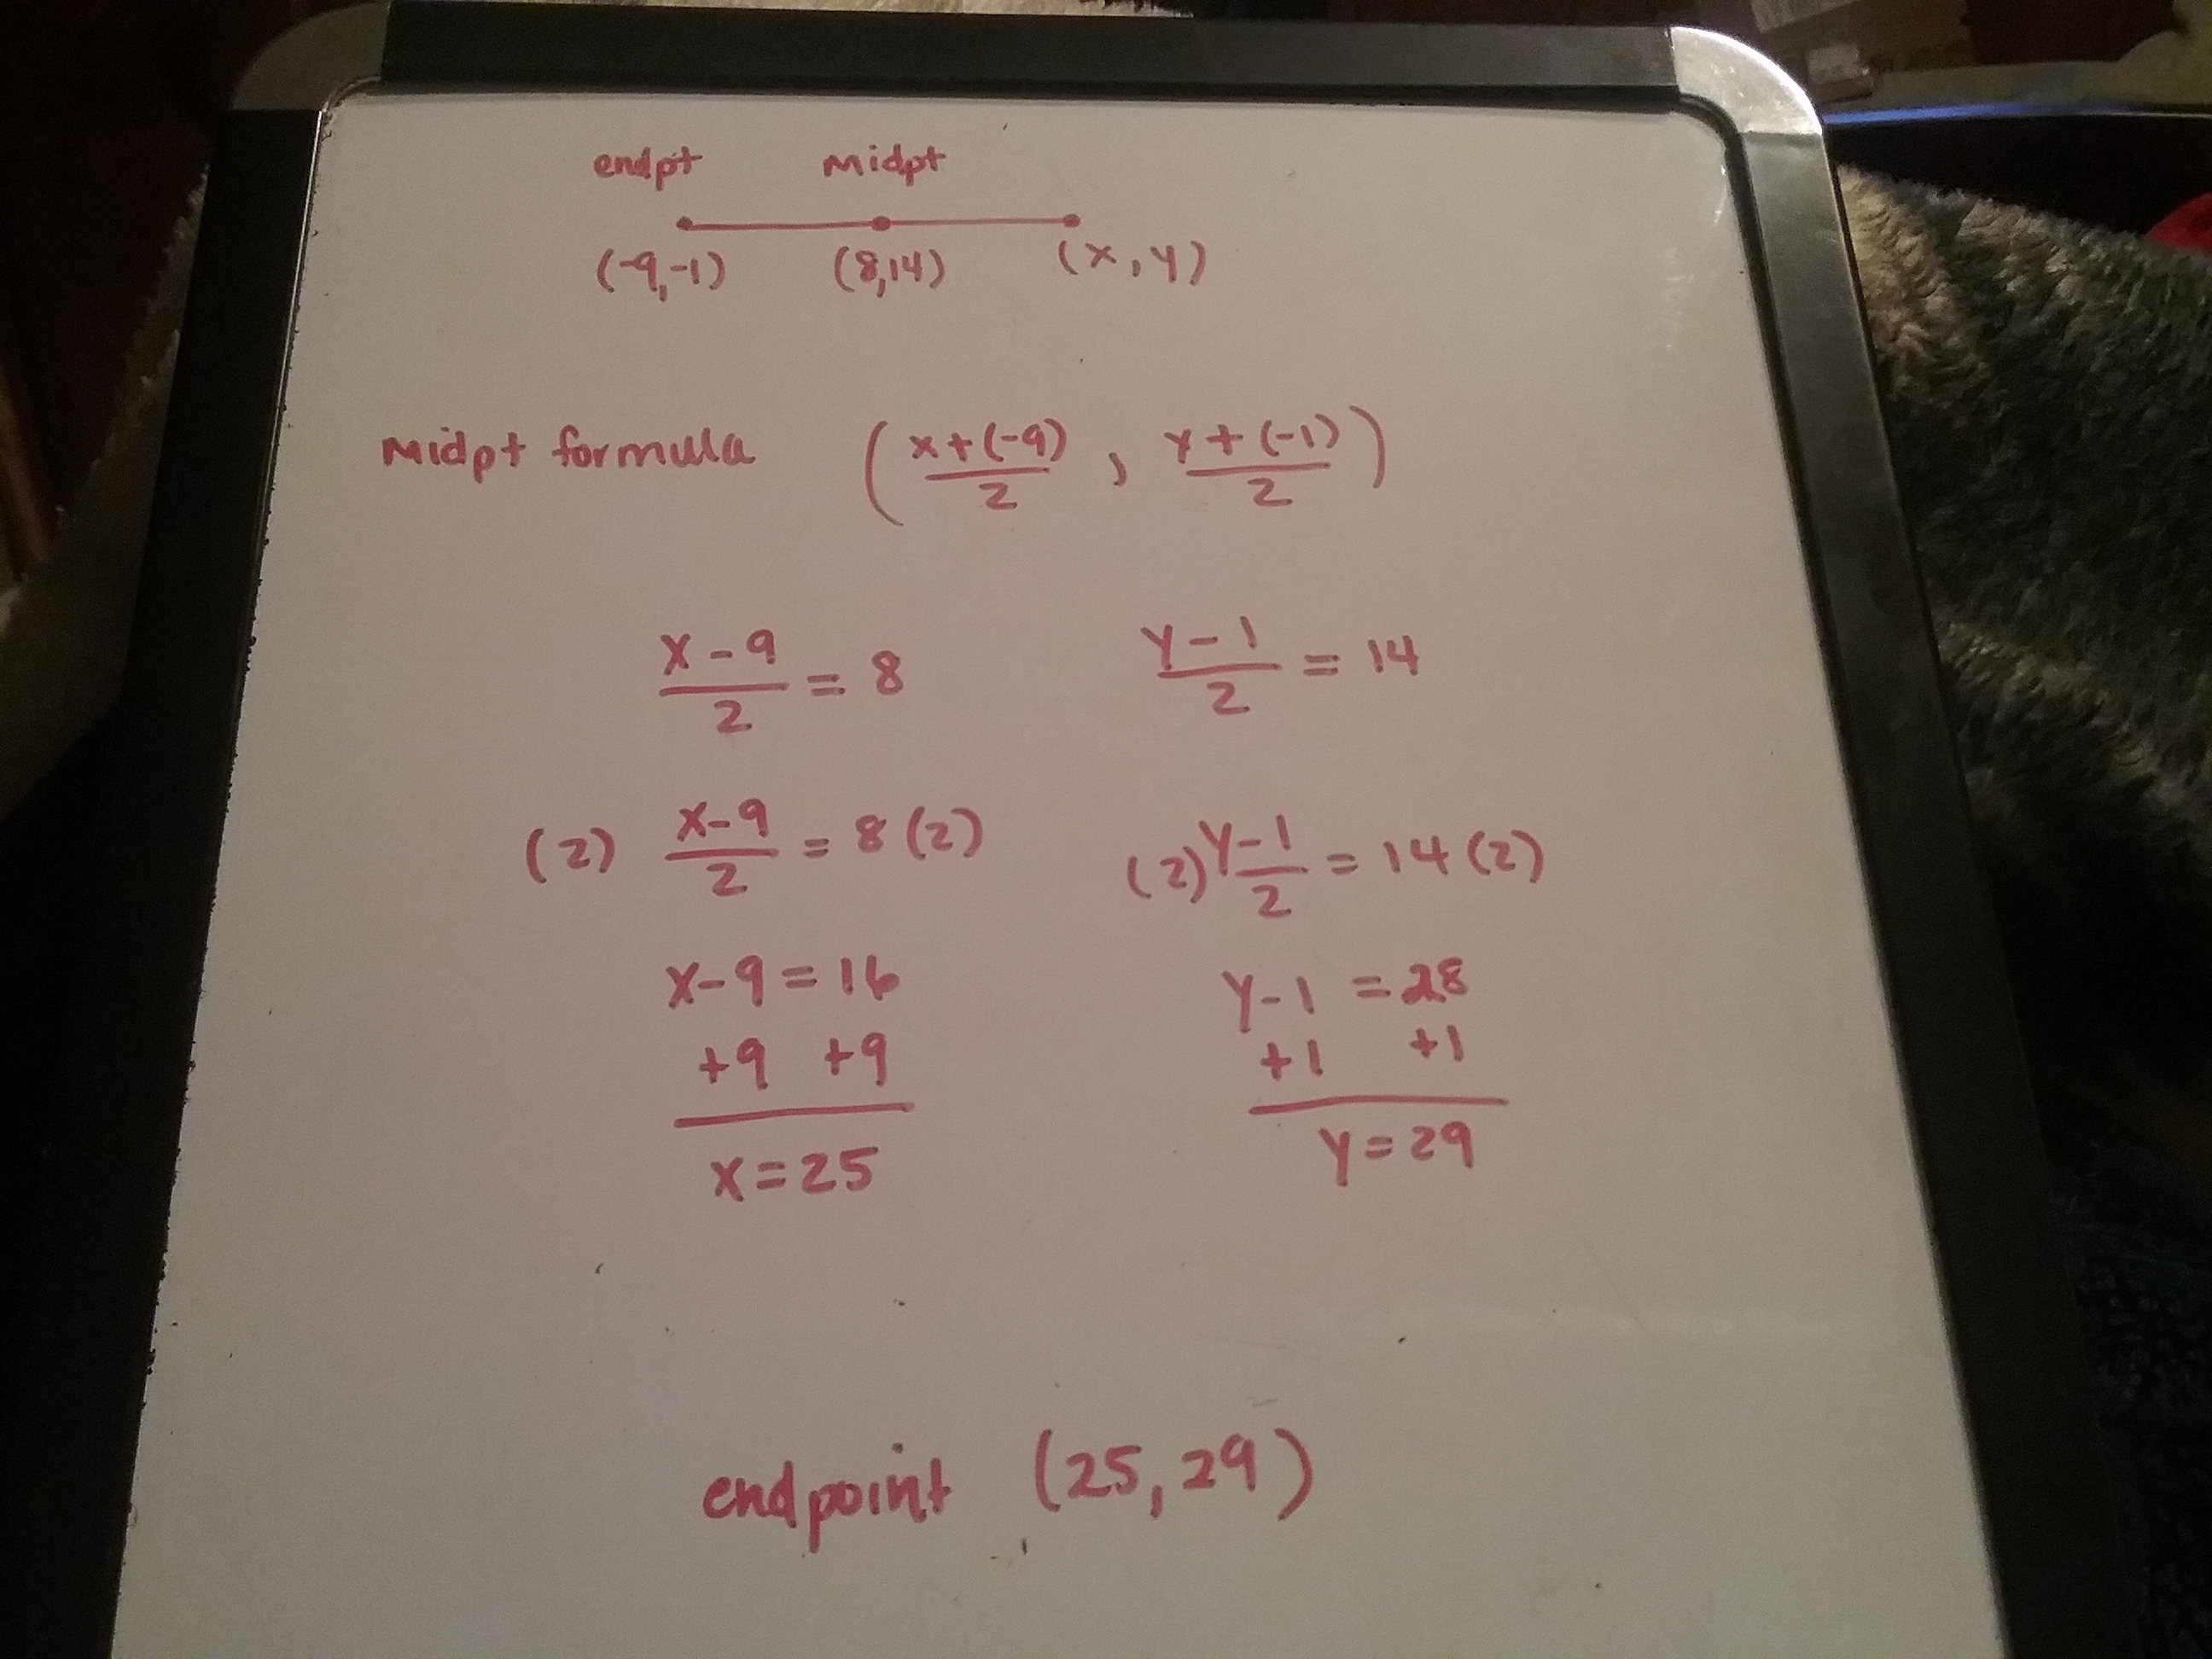 endpt midpt
(-9,-1) (8,14) (x,y)
midpt formula (x+(-9)/2, y+(-1)/2)
x-9/2 = 8 y-1/2 = 14
(2) x-9/2 = 8(2) (2) y-1/2 = 14(2)
x-9=16 y-1=28
+9 +9 +1 +1
x=25 y=29
endpoint (25,29)